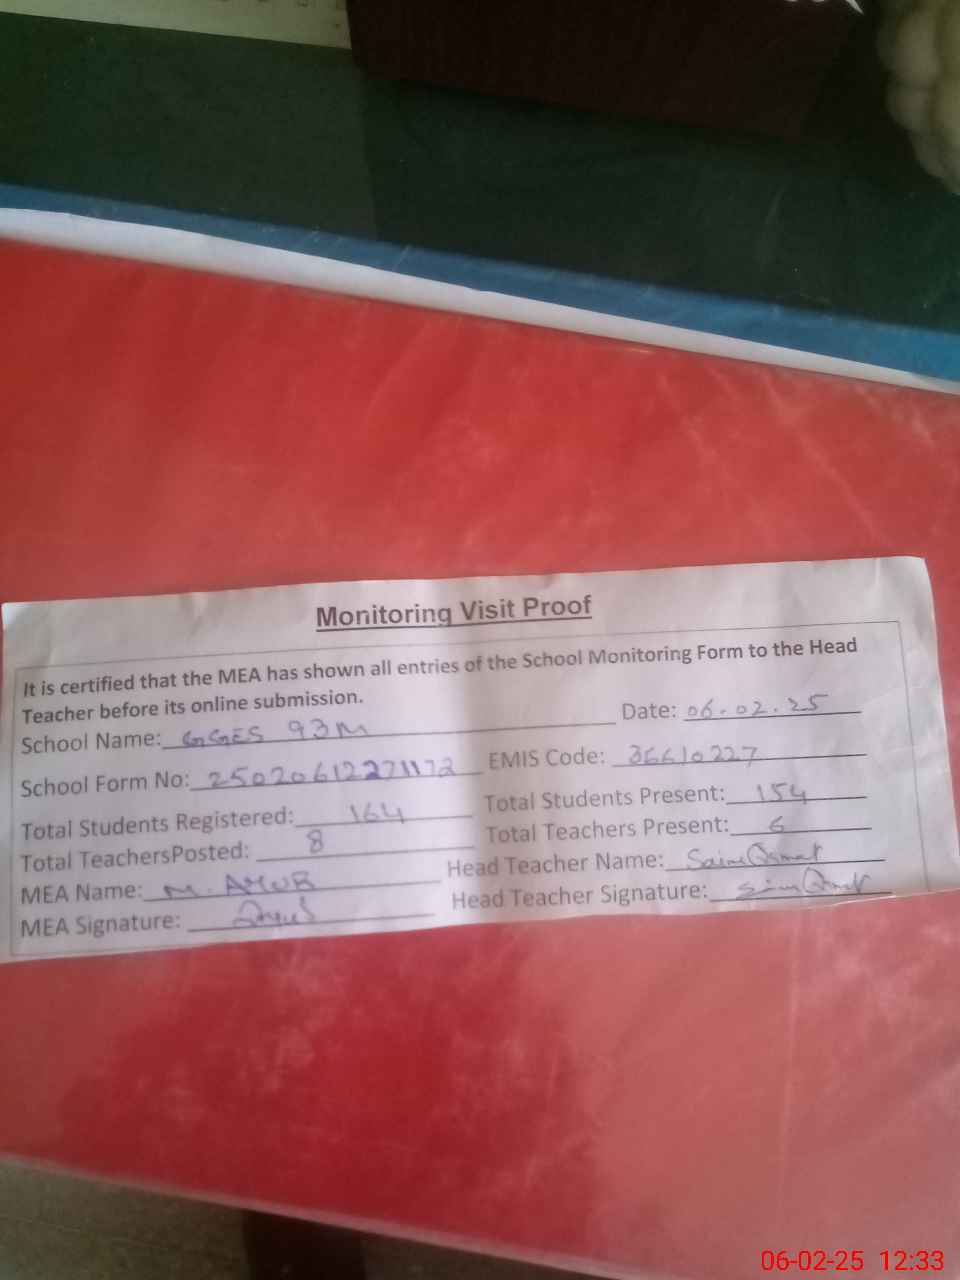 Monitoring Visit Proof
It is certified that the MEA has shown all entries of the School Monitoring Form to the Head
Teacher before its online submission.
School Name: GGES 93M Date: 06.02.25
School Form No: 25020612271172 EMIS Code: 36610227
Total Students Registered: 164 Total Students Present: 154
Total TeachersPosted: 8 Total Teachers Present: 6
MEA Name: M. AYUB Head Teacher Name:
MEA Signature: Head Teacher Signature:
06-02-25 12:33